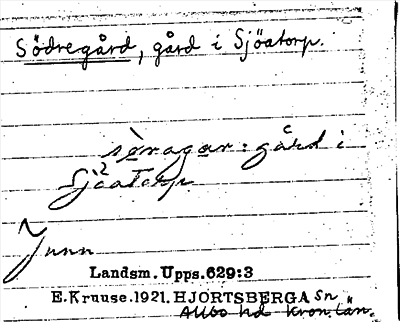 Södregård, gård i Sjöatorp.
sǫ̀ragar: gård i
Sjöatorp
Landsm. Upps. 629:3
E. Kruuse. 1921. HJORTSBERGA Sn
Allbo hd Kron. län.